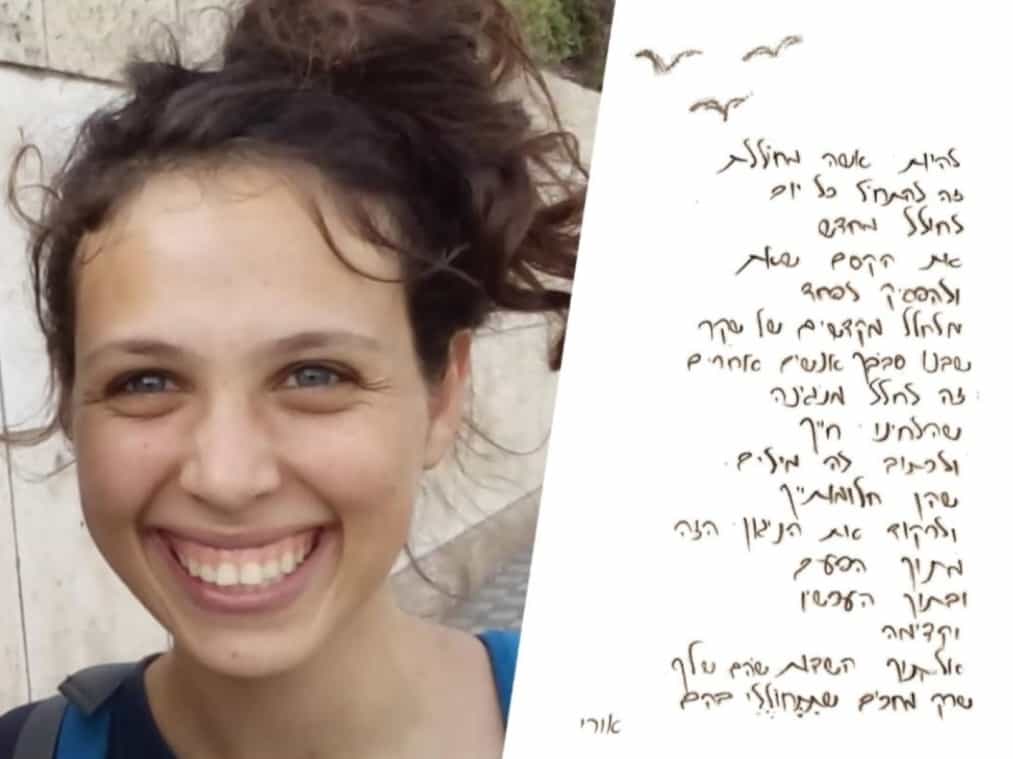 להיות אשה מחוללת
זה להתחיל כל יום
לחולל מחדש
את הקסם שאת
ולהפסיק לפחד
מלחלל מקדשים של שקר
שבנו סביבך אנשים אחרים
זה לחלל מנגינה
שהלחינו חייך
ולכתוב לה מילים
שהן חלומותייך
ולרקוד את הניגון הזה
מתוך הפעם
ובתוך העכשיו
וקדימה
אל תוך השדות שהם שלך
שרק מחכים שֶתְחוֹלֲלִי בהם
אורי